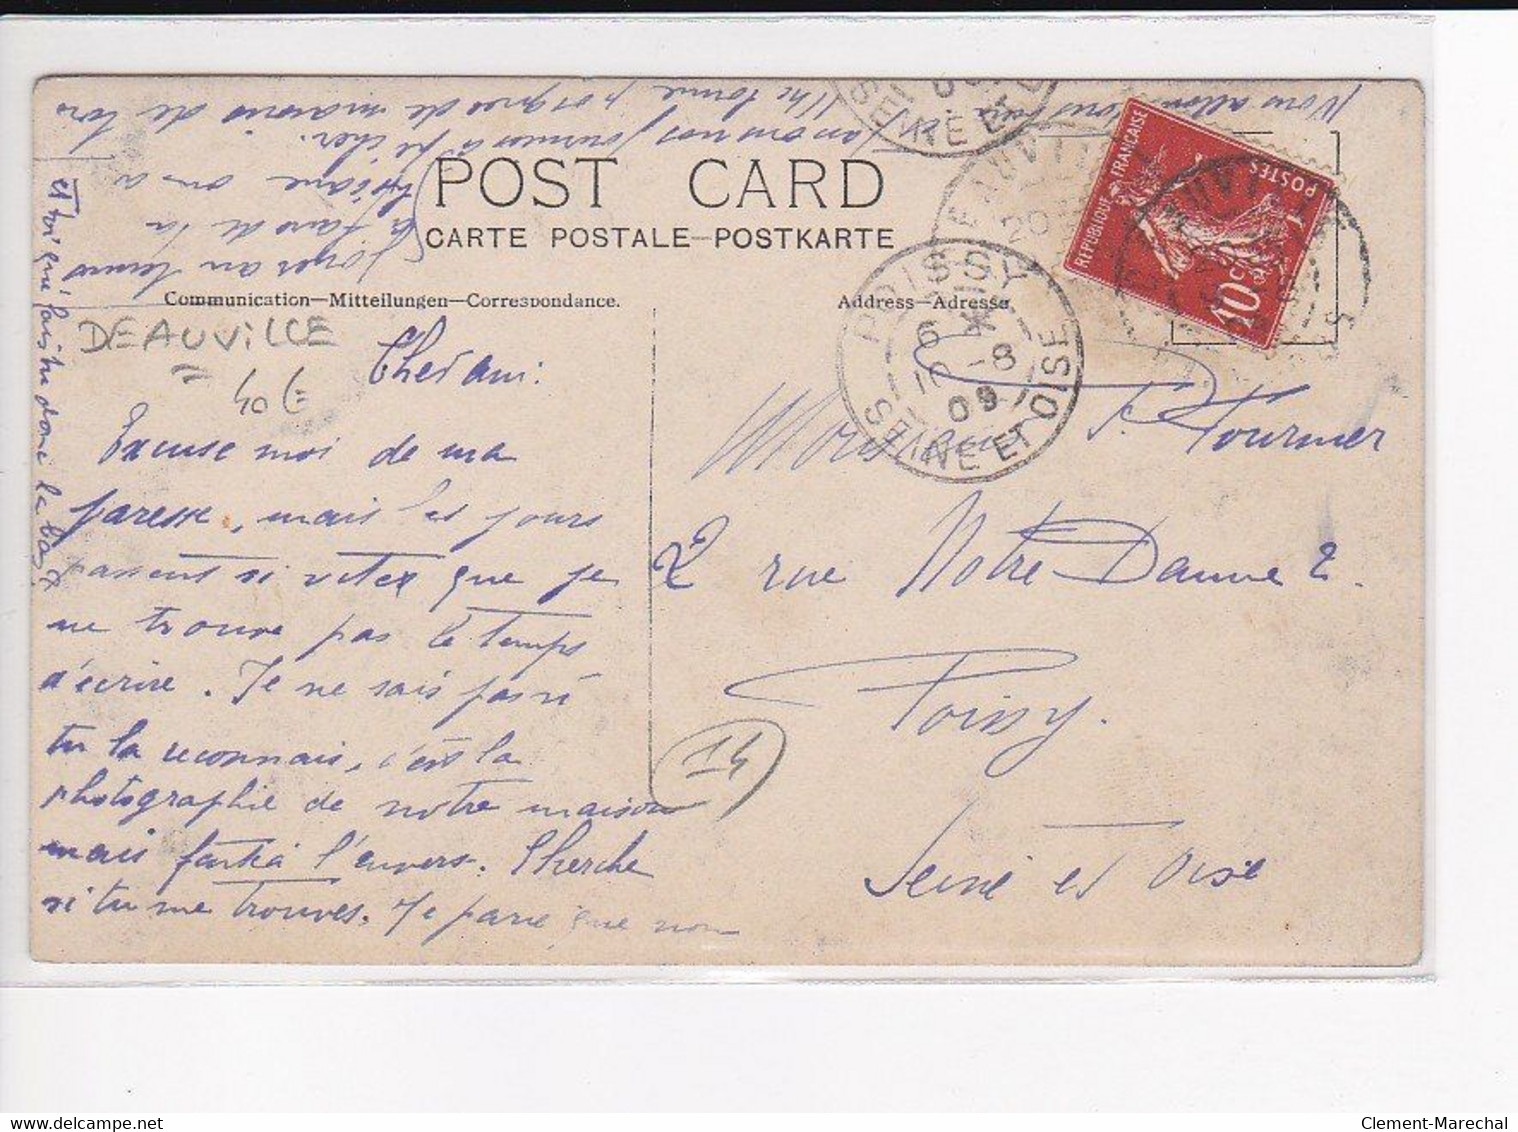 POST CARD
CARTE POSTALE—POSTKARTE
Communication—Mitteilungen—Correspondance.
Address—Adresse
DEAUVILLE
40 E
Cher ami:
Excuse moi de ma
paresse, mais les jours
passent si vites que je
ne trouve pas le temps
d'écrire. Je ne sais pas si
tu la reconnais, c'est la
photographie de notre maison
mais faite à l'envers. Cherche
si tu me trouves. Je parie que non
Nous allons
nos journées à pêcher.
de la
au tennis
et toi que fais tu donc là bas
14
Monsieur P. Fournier
2 rue Notre Dame 2.
Poissy.
Seine et Oise
POISSY
6
10 -8
09
SEINE ET OISE
RÉPUBLIQUE FRANÇAISE
POSTES
10
Clement-Marechal